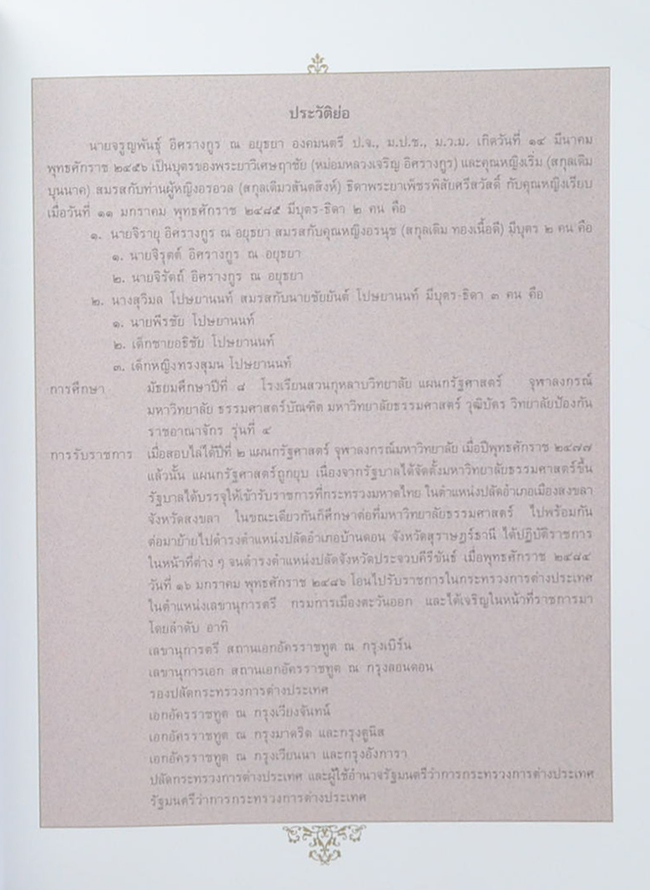 ประวัติย่อ
นายจรูญพันธุ์ อิศรางกูร ณ อยุธยา องคมนตรี ป.จ., ม.ป.ช., ม.ว.ม. เกิดวันที่ ๑๔ มีนาคม
พุทธศักราช ๒๔๕๖ เป็นบุตรของพระยาวิเศษฤาชัย (หม่อมหลวงเจริญ อิศรางกูร) และคุณหญิงเริ่ม (สกุลเดิม
บุนนาค) สมรสกับท่านผู้หญิงอรอวล (สกุลเดิมวสันตสิงห์) ธิดาพระยาเพ็ชรพิสัยศรีสวัสดิ์ กับคุณหญิงเรียบ
เมื่อวันที่ ๑๑ มกราคม พุทธศักราช ๒๔๘๕ มีบุตร-ธิดา ๒ คน คือ
๑. นายจิรายุ อิศรางกูร ณ อยุธยา สมรสกับคุณหญิงอรนุช (สกุลเดิม ทองเนื้อดี) มีบุตร ๒ คน คือ
๑. นายจิรุตถ์ อิศรางกูร ณ อยุธยา
๒. นายจิรัตถ์ อิศรางกูร ณ อยุธยา
๒. นางสุวิมล โปษยานนท์ สมรสกับนายชัยยันต์ โปษยานนท์ มีบุตร-ธิดา ๓ คน คือ
๑. นายพีรชัย โปษยานนท์
๒. เด็กชายอธิชัย โปษยานนท์
๓. เด็กหญิงทรงสุมน โปษยานนท์
การศึกษา มัธยมศึกษาปีที่ ๘ โรงเรียนสวนกุหลาบวิทยาลัย แผนกรัฐศาสตร์ จุฬาลงกรณ์
มหาวิทยาลัย ธรรมศาสตร์บัณฑิต มหาวิทยาลัยธรรมศาสตร์ วุฒิบัตร วิทยาลัยป้องกัน
ราชอาณาจักร รุ่นที่ ๔
การรับราชการ เมื่อสอบไล่ได้ปีที่ ๒ แผนกรัฐศาสตร์ จุฬาลงกรณ์มหาวิทยาลัย เมื่อปีพุทธศักราช ๒๔๗๗
แล้วนั้น แผนกรัฐศาสตร์ถูกยุบ เนื่องจากรัฐบาลได้จัดตั้งมหาวิทยาลัยธรรมศาสตร์ขึ้น
รัฐบาลได้บรรจุให้เข้ารับราชการที่กระทรวงมหาดไทย ในตำแหน่งปลัดอำเภอเมืองสงขลา
จังหวัดสงขลา ในขณะเดียวกันก็ศึกษาต่อที่มหาวิทยาลัยธรรมศาสตร์ ไปพร้อมกัน
ต่อมาย้ายไปดำรงตำแหน่งปลัดอำเภอบ้านดอน จังหวัดสุราษฎร์ธานี ได้ปฏิบัติราชการ
ในหน้าที่ต่าง ๆ จนดำรงตำแหน่งปลัดจังหวัดประจวบคีรีขันธ์ เมื่อพุทธศักราช ๒๔๘๔
วันที่ ๑๖ มกราคม พุทธศักราช ๒๔๘๖ โอนไปรับราชการในกระทรวงการต่างประเทศ
ในตำแหน่งเลขานุการตรี กรมการเมืองตะวันออก และได้เจริญในหน้าที่ราชการมา
โดยลำดับ อาทิ
เลขานุการตรี สถานเอกอัครราชทูต ณ กรุงเบิร์น
เลขานุการเอก สถานเอกอัครราชทูต ณ กรุงลอนดอน
รองปลัดกระทรวงการต่างประเทศ
เอกอัครราชทูต ณ กรุงเวียงจันทน์
เอกอัครราชทูต ณ กรุงมาดริด และกรุงตูนิส
เอกอัครราชทูต ณ กรุงเวียนนา และกรุงอังการา
ปลัดกระทรวงการต่างประเทศ และผู้ใช้อำนาจรัฐมนตรีว่าการกระทรวงการต่างประเทศ
รัฐมนตรีว่าการกระทรวงการต่างประเทศ